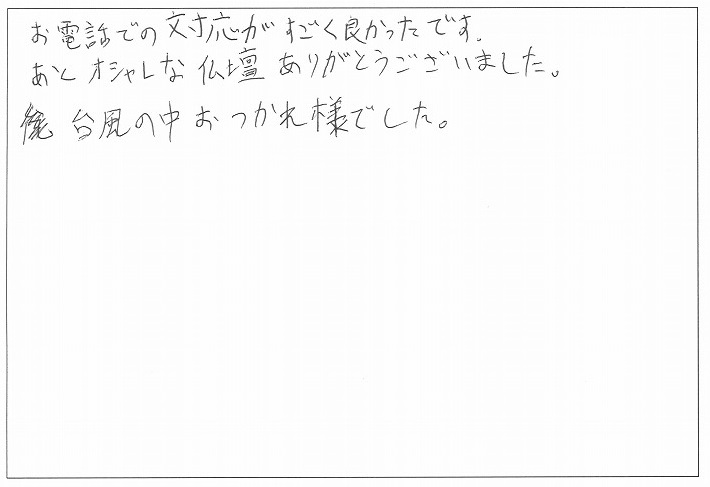 お電話での対応がすごく良かったです.
あと オシャレな 仏壇 ありがとうございました。
後 台風の中 おつかれ様でした。